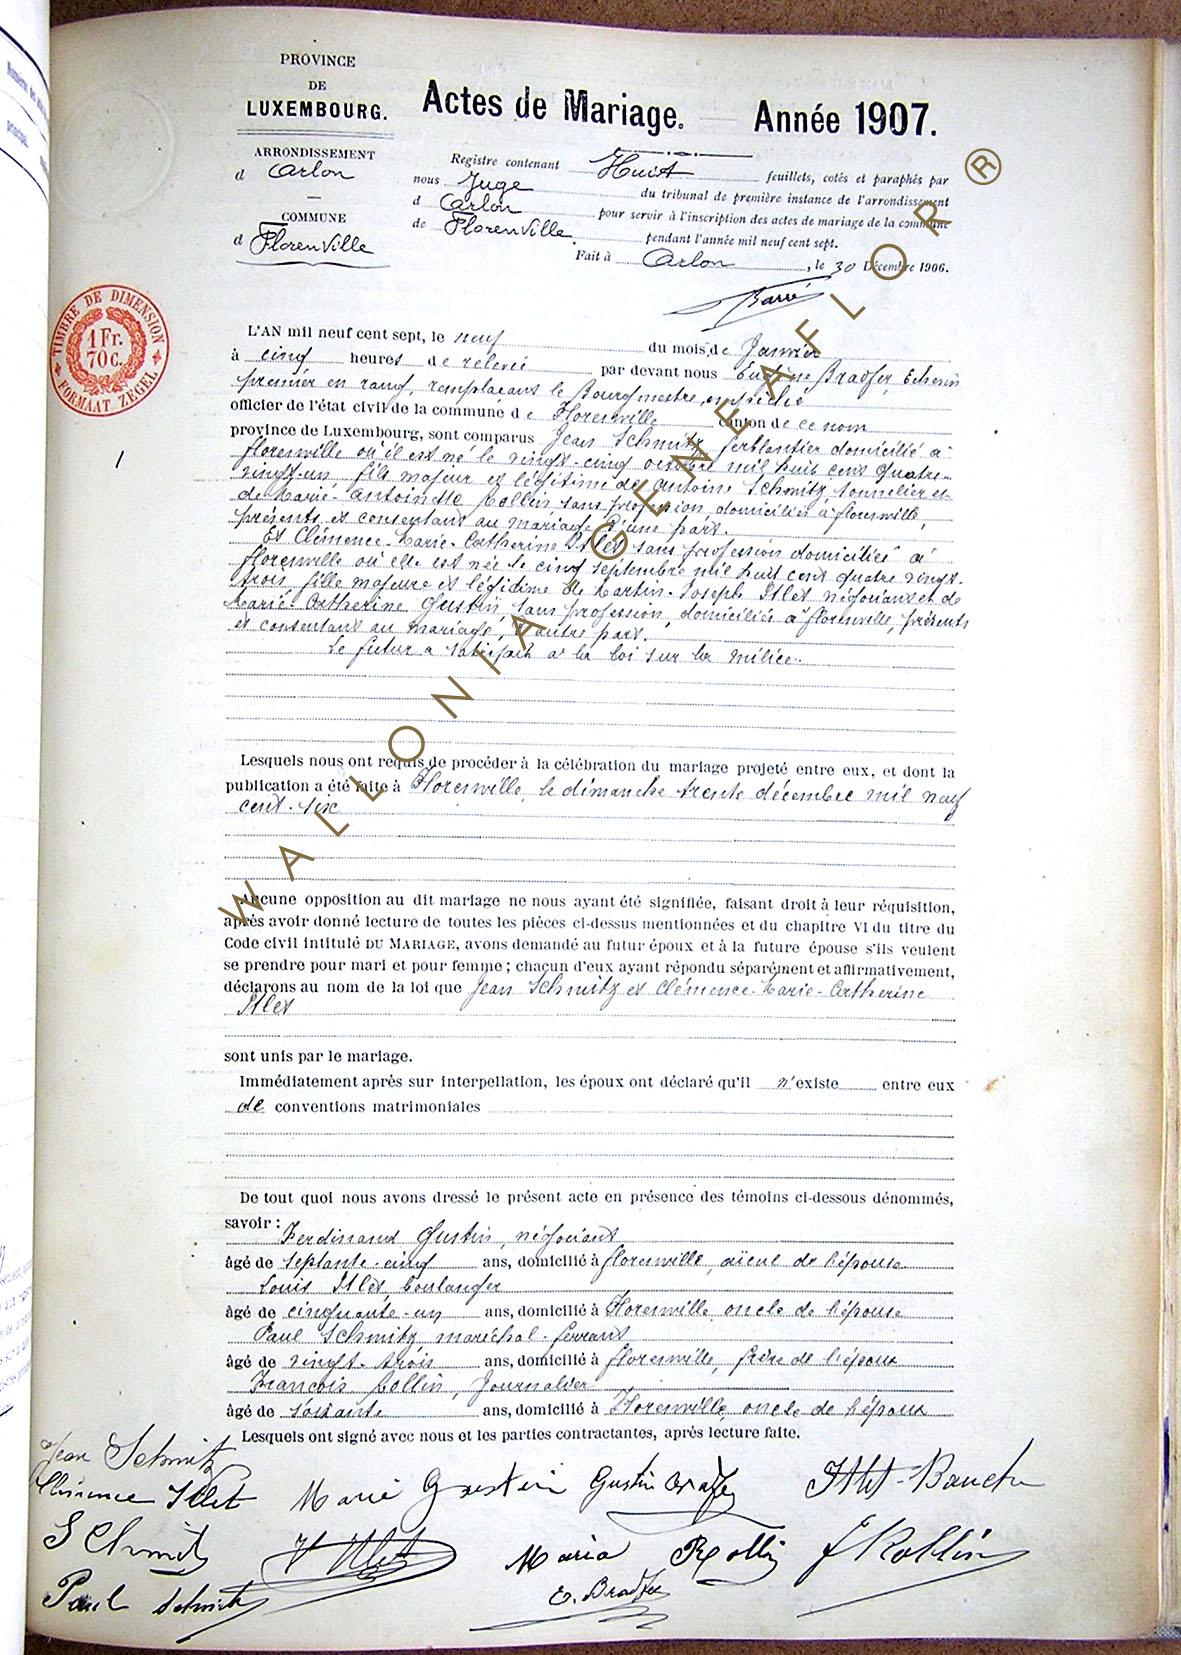 PROVINCE
DE
LUXEMBOURG.
Actes de Mariage. — Année 1907.
ARRONDISSEMENT
d Arlon
COMMUNE
d Florenville
Registre contenant Huit feuillets, cotés et paraphés par
nous Juge du tribunal de première instance de l'arrondissement
d Arlon pour servir à l'inscription des actes de mariage de la commune
de Florenville. pendant l'année mil neuf cent sept.
Fait à Arlon, le 30 Décembre 1906.
TIMBRE DE DIMENSION
1 Fr.
70 c.
FORMAAT ZEGEL
1
L'AN mil neuf cent sept, le neuf du mois de Janvier
à cinq heures de relevée par devant nous Eugène Bradfer, Echevin
premier en rang, remplaçant le Bourgmestre empêché
officier de l'état civil de la commune de Florenville canton de ce nom
province de Luxembourg, sont comparus Jean Schmitz, ferblantier domicilié à
florenville où il est né le vingt-cinq octobre mil huit cent quatre-
vingt-un, fils majeur et légitime de Antoine Schmitz, tonnelier et
de Marie-Antoinette Rollin, sans profession, domiciliés à florenville,
présents et consentant au mariage, d'une part.
Et Clémence-Marie-Catherine Itlet sans profession domiciliée à
florenville où elle est née le cinq septembre mil huit cent quatre vingt-
trois, fille majeure et légitime de Martin-Joseph Itlet négociant et de
Marie-Catherine Gustin, sans profession, domiciliés à florenville, présents
et consentant au mariage, d'autre part.
Le futur a satisfait à la loi sur la milice.
Lesquels nous ont requis de procéder à la célébration du mariage projeté entre eux, et dont la
publication a été faite à Florenville, le dimanche trente décembre mil neuf
cent-six
Aucune opposition au dit mariage ne nous ayant été signifiée, faisant droit à leur réquisition,
après avoir donné lecture de toutes les pièces ci-dessus mentionnées et du chapitre VI du titre du
Code civil intitulé DU MARIAGE, avons demandé au futur époux et à la future épouse s'ils veulent
se prendre pour mari et pour femme ; chacun d'eux ayant répondu séparément et affirmativement,
déclarons au nom de la loi que Jean Schmitz et Clémence-Marie-Catherine
Itlet
sont unis par le mariage.
Immédiatement après sur interpellation, les époux ont déclaré qu'il n'existe entre eux
de conventions matrimoniales
De tout quoi nous avons dressé le présent acte en présence des témoins ci-dessous dénommés,
savoir : Ferdinand Gustin, négociant
âgé de septante-cinq ans, domicilié à florenville, aïeul de l'épouse
Louis Itlet, boulanger
âgé de cinquante-un ans, domicilié à Florenville, oncle de l'épouse
Paul Schmitz maréchal-ferrant
âgé de vingt-trois ans, domicilié à florenville, frère de l'époux
François Rollin, Journalier
âgé de soixante ans, domicilié à Florenville, oncle de l'époux
Lesquels ont signé avec nous et les parties contractantes, après lecture faite.
Jean Schmitz
Clémence Itlet Marie Gustin Gustin Itlet-Bauche
Schmitz Itlet Maria Rollin F Rollin
Paul Schmitz E. Bradfer
WALLONIA GENEAFLOR ®